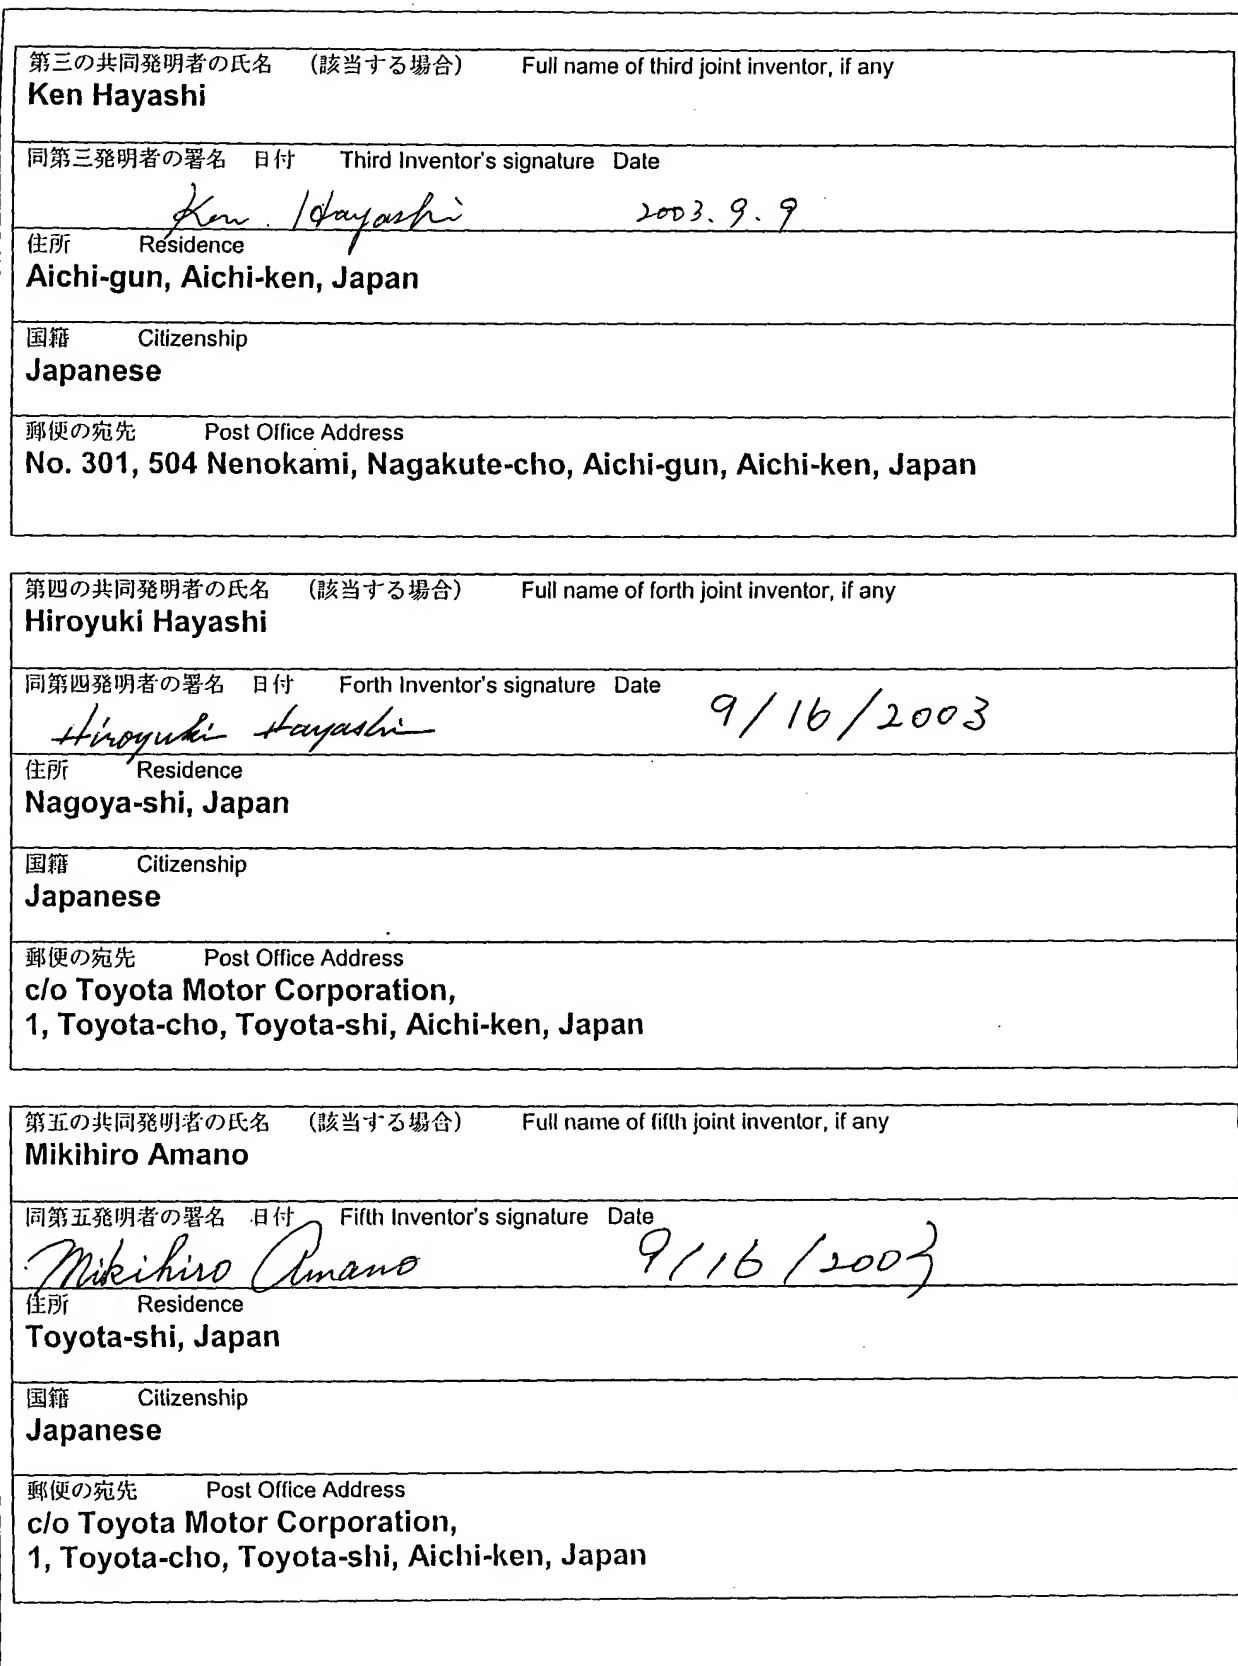 第三の共同発明者の氏名 (該当する場合) Full name of third joint inventor, if any
Ken Hayashi
同第三発明者の署名 日付 Third Inventor's signature Date
Ken. Hayashi 2003.9.9
住所 Residence
Aichi-gun, Aichi-ken, Japan
国籍 Citizenship
Japanese
郵便の宛先 Post Office Address
No. 301, 504 Nenokami, Nagakute-cho, Aichi-gun, Aichi-ken, Japan
第四の共同発明者の氏名 (該当する場合) Full name of forth joint inventor, if any
Hiroyuki Hayashi
同第四発明者の署名 日付 Forth Inventor's signature Date
Hiroyuki Hayashi 9/16/2003
住所 Residence
Nagoya-shi, Japan
国籍 Citizenship
Japanese
郵便の宛先 Post Office Address
c/o Toyota Motor Corporation,
1, Toyota-cho, Toyota-shi, Aichi-ken, Japan
第五の共同発明者の氏名 (該当する場合) Full name of fifth joint inventor, if any
Mikihiro Amano
同第五発明者の署名 日付 Fifth Inventor's signature Date
Mikihiro Amano 9/16/2003
住所 Residence
Toyota-shi, Japan
国籍 Citizenship
Japanese
郵便の宛先 Post Office Address
c/o Toyota Motor Corporation,
1, Toyota-cho, Toyota-shi, Aichi-ken, Japan